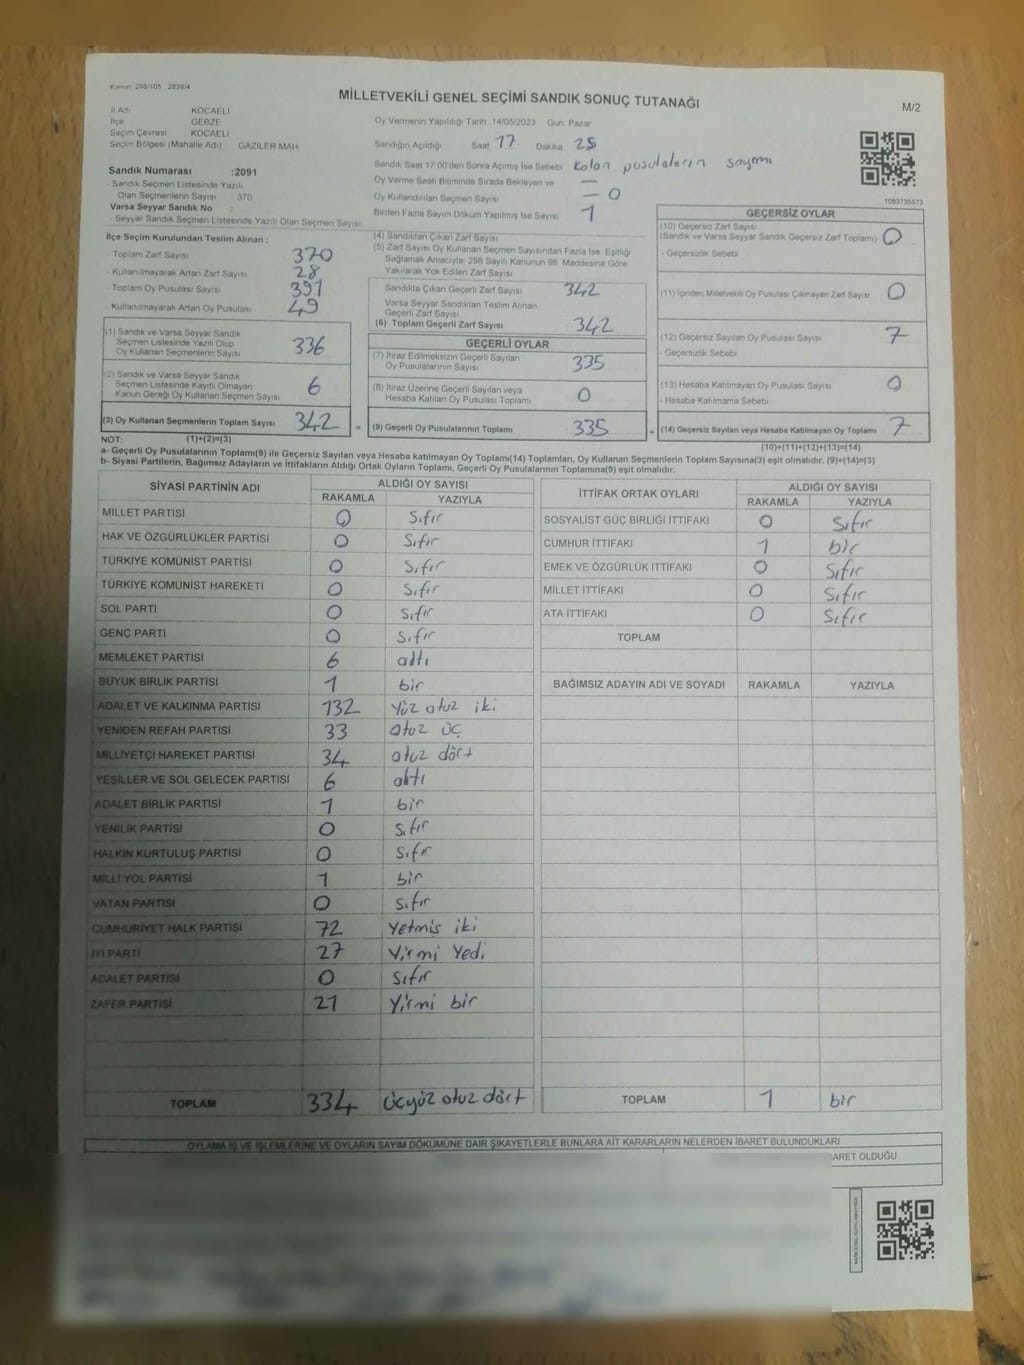 MİLLETVEKİLİ GENEL SEÇİMİ SANDIK SONUÇ TUTANAĞI
M/2
İl Adı : KOCAELİ
İlçe : GEBZE
Seçim Çevresi : KOCAELİ
Seçim Bölgesi (Mahalle Adı) : GAZİLER MAH
Oy Vermenin Yapıldığı Tarih 14/05/2023 Gün Pazar
Sandığın Açıldığı Saat 17 Dakika 25
Sandık Saat 17.00'den Sonra Açılmış İse Sebebi kalan pusulaların sayımı
Oy Verme Saati Bitiminde Sırada Bekleyen ve —
Oy Kullandırılan Seçmen Sayısı — 0
Birden Fazla Sayım Döküm Yapılmış İse Sayısı 1
1083735573
Sandık Numarası :2091
- Sandık Seçmen Listesinde Yazılı
Olan Seçmenlerin Sayısı : 370
Varsa Seyyar Sandık No :
- Seyyar Sandık Seçmen Listesinde Yazılı Olan Seçmen Sayısı :
İlçe Seçim Kurulundan Teslim Alınan ;
- Toplam Zarf Sayısı 370
- Kullanılmayarak Artan Zarf Sayısı 28
- Toplam Oy Pusulası Sayısı 391
- Kullanılmayarak Artan Oy Pusulası 49
(1) Sandık ve Varsa Seyyar Sandık
Seçmen Listesinde Yazılı Olup
Oy Kullanan Seçmenlerin Sayısı 336
(2) Sandık ve Varsa Seyyar Sandık
Seçmen Listesinde Kayıtlı Olmayan
Kanun Gereği Oy Kullanan Seçmen Sayısı 6
(3) Oy Kullanan Seçmenlerin Toplam Sayısı 342 =
(4) Sandıktan Çıkan Zarf Sayısı
(5) Zarf Sayısı Oy Kullanan Seçmen Sayısından Fazla İse, Eşitliği
Sağlamak Amacıyla; 298 Sayılı Kanunun 98. Maddesine Göre
Yakılarak Yok Edilen Zarf Sayısı
Sandıkta Çıkan Geçerli Zarf Sayısı 342
Varsa Seyyar Sandıktan Teslim Alınan
Geçerli Zarf Sayısı
(6) Toplam Geçerli Zarf Sayısı 342
GEÇERLİ OYLAR
(7) İtiraz Edilmeksizin Geçerli Sayılan
Oy Pusulalarının Sayısı 335
(8) İtiraz Üzerine Geçerli Sayılan veya
Hesaba Katılan Oy Pusulası Toplamı 0
(9) Geçerli Oy Pusulalarının Toplamı 335 +
GEÇERSİZ OYLAR
(10) Geçersiz Zarf Sayısı
(Sandık ve Varsa Seyyar Sandık Geçersiz Zarf Toplamı) 0
- Geçersizlik Sebebi :
(11) İçinden Milletvekili Oy Pusulası Çıkmayan Zarf Sayısı 0
(12) Geçersiz Sayılan Oy Pusulası Sayısı 7
- Geçersizlik Sebebi :
(13) Hesaba Katılmayan Oy Pusulası Sayısı 0
- Hesaba Katılmama Sebebi :
(14) Geçersiz Sayılan veya Hesaba Katılmayan Oy Toplamı 7
NOT: (1)+(2)=(3)
(10)+(11)+(12)+(13)=(14)
a- Geçerli Oy Pusulalarının Toplamı(9) ile Geçersiz Sayılan veya Hesaba Katılmayan Oy Pusulası Toplamı(14) Toplamları, Oy Kullanan Seçmenlerin Toplam Sayısına(3) eşit olmalıdır. (9)+(14)=(3)
b- Siyasi Partilerin, Bağımsız Adayların ve İttifakların Aldığı Ortak Oyların Toplamı, Geçerli Oy Pusulalarının Toplamına(9) eşit olmalıdır.
SİYASİ PARTİNİN ADI ALDIĞI OY SAYISI
RAKAMLA YAZIYLA
MİLLET PARTİSİ 0 Sıfır
HAK VE ÖZGÜRLÜKLER PARTİSİ 0 Sıfır
TÜRKİYE KOMÜNİST PARTİSİ 0 Sıfır
TÜRKİYE KOMÜNİST HAREKETİ 0 Sıfır
SOL PARTİ 0 Sıfır
GENÇ PARTİ 0 Sıfır
MEMLEKET PARTİSİ 6 altı
BÜYÜK BİRLİK PARTİSİ 1 bir
ADALET VE KALKINMA PARTİSİ 132 Yüz otuz iki
YENİDEN REFAH PARTİSİ 33 otuz üç
MİLLİYETÇİ HAREKET PARTİSİ 34 otuz dört
YEŞİLLER VE SOL GELECEK PARTİSİ 6 altı
ADALET BİRLİK PARTİSİ 1 bir
YENİLİK PARTİSİ 0 Sıfır
HALKIN KURTULUŞ PARTİSİ 0 Sıfır
MİLLİ YOL PARTİSİ 1 bir
VATAN PARTİSİ 0 Sıfır
CUMHURİYET HALK PARTİSİ 72 Yetmiş iki
İYİ PARTİ 27 Yirmi Yedi
ADALET PARTİSİ 0 Sıfır
ZAFER PARTİSİ 21 Yirmi bir
TOPLAM 334 Üçyüz otuz dört
İTTİFAK ORTAK OYLARI ALDIĞI OY SAYISI
RAKAMLA YAZIYLA
SOSYALİST GÜÇ BİRLİĞİ İTTİFAKI 0 Sıfır
CUMHUR İTTİFAKI 1 bir
EMEK VE ÖZGÜRLÜK İTTİFAKI 0 Sıfır
MİLLET İTTİFAKI 0 Sıfır
ATA İTTİFAKI 0 Sıfır
TOPLAM
BAĞIMSIZ ADAYIN ADI VE SOYADI RAKAMLA YAZIYLA
TOPLAM 1 bir
OYLAMA İŞ VE İŞLEMLERİNE VE OYLARIN SAYIM DÖKÜMÜNE DAİR ŞİKAYETLERLE BUNLARA AİT KARARLARIN NELERDEN İBARET BULUNDUKLARI
OLDUĞU